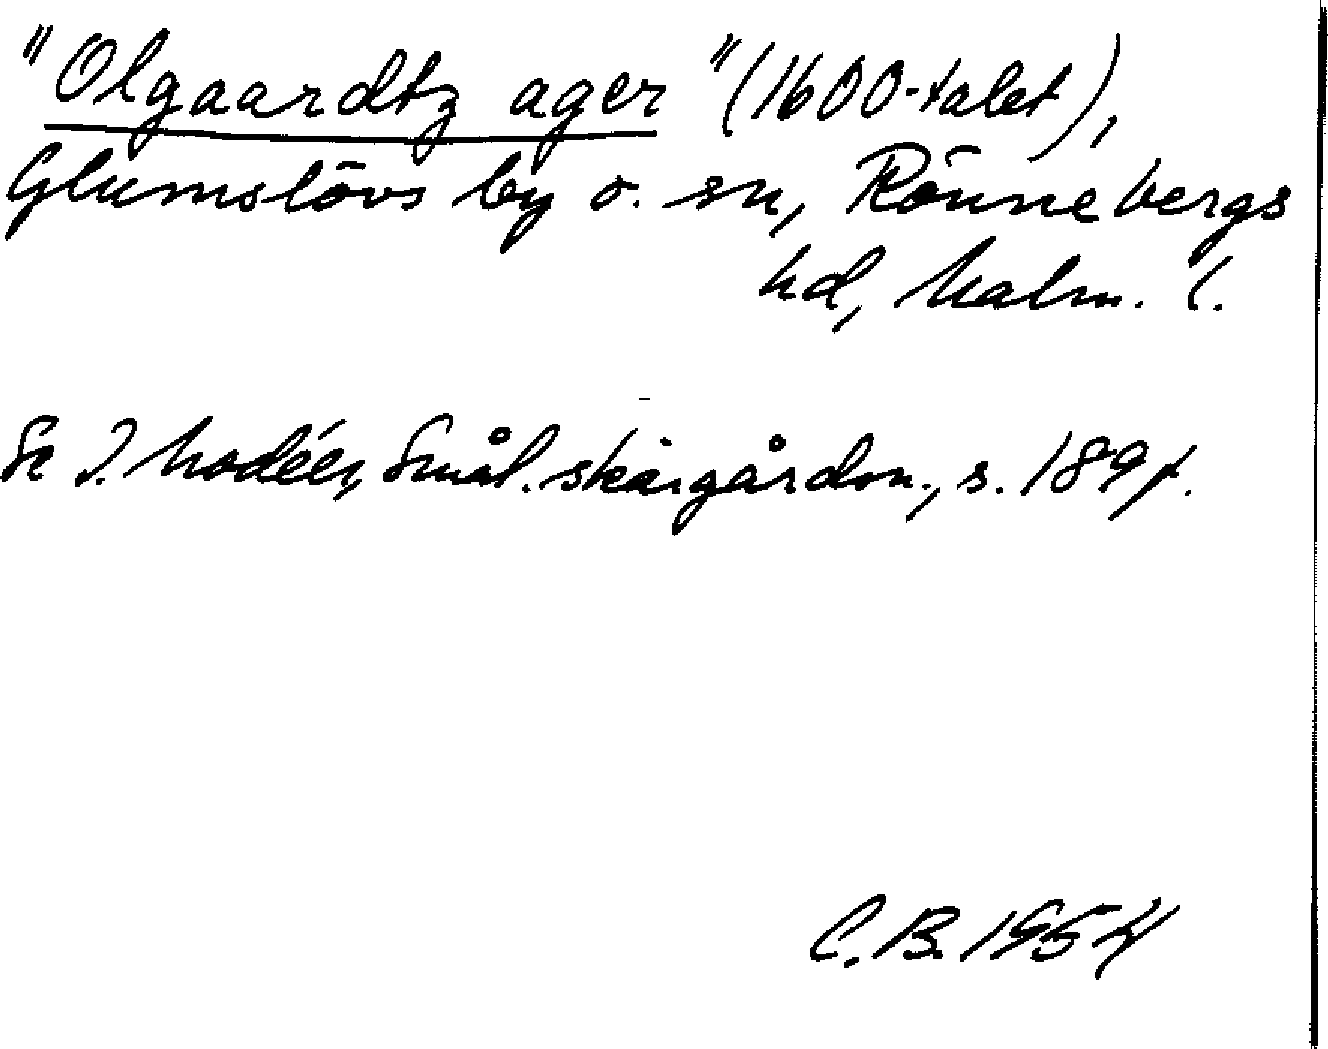 "Olgaardtz ager" (1600-talet),
Glumslövs by o. sn, Rönnebergs
hd, Malm. l.
Se I. Modéer, Smål. skärgårdsn., s. 189 f.
C. B. 1954